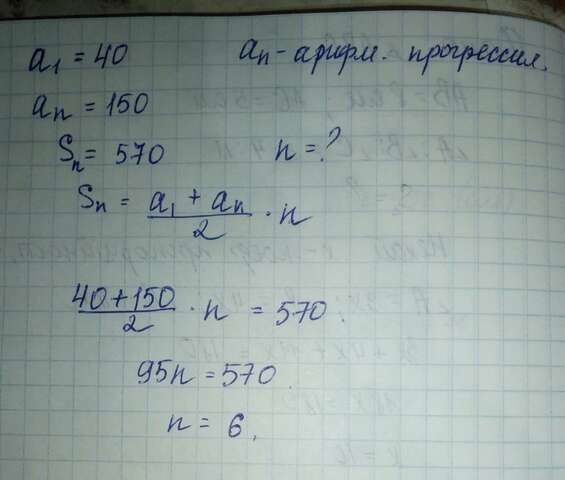 a₁ = 40 aₙ - арифм. прогрессия.
aₙ = 150
Sₙ = 570 n = ?
Sₙ = (a₁ + aₙ)/2 · n
(40 + 150)/2 · n = 570.
95n = 570.
n = 6.